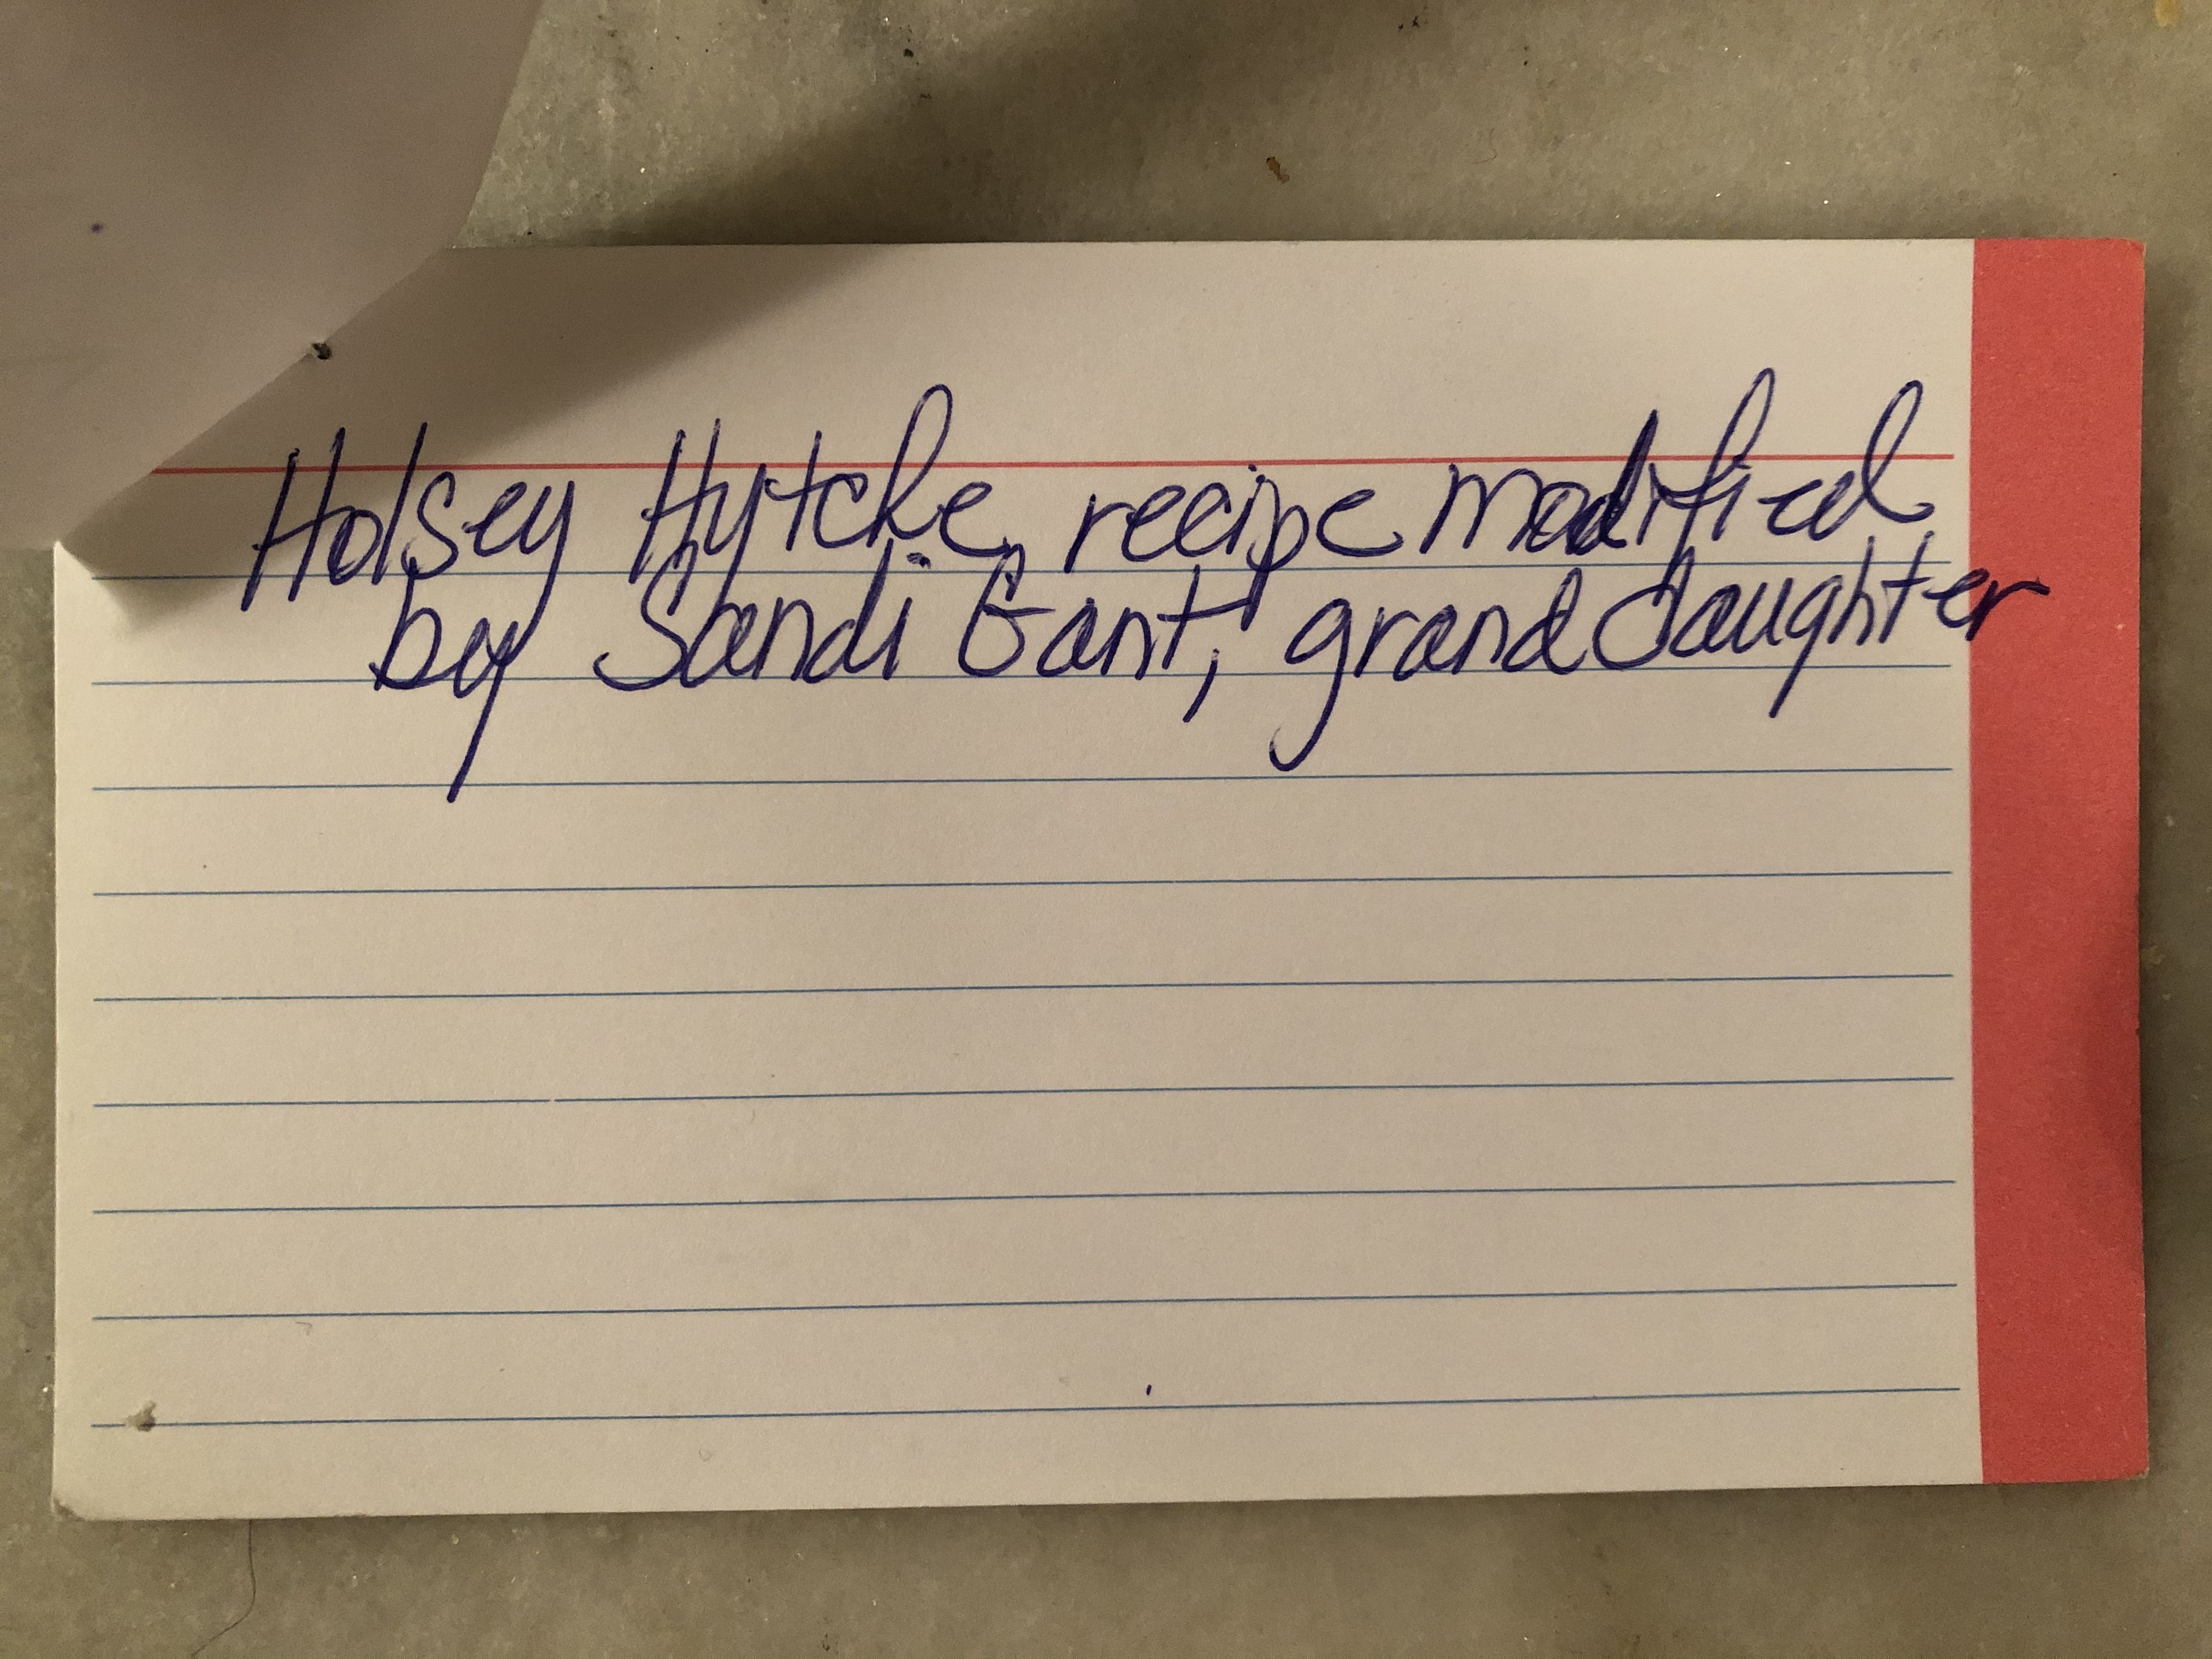 Holsey Hytche recipe modified
by Sandi Gant, granddaughter